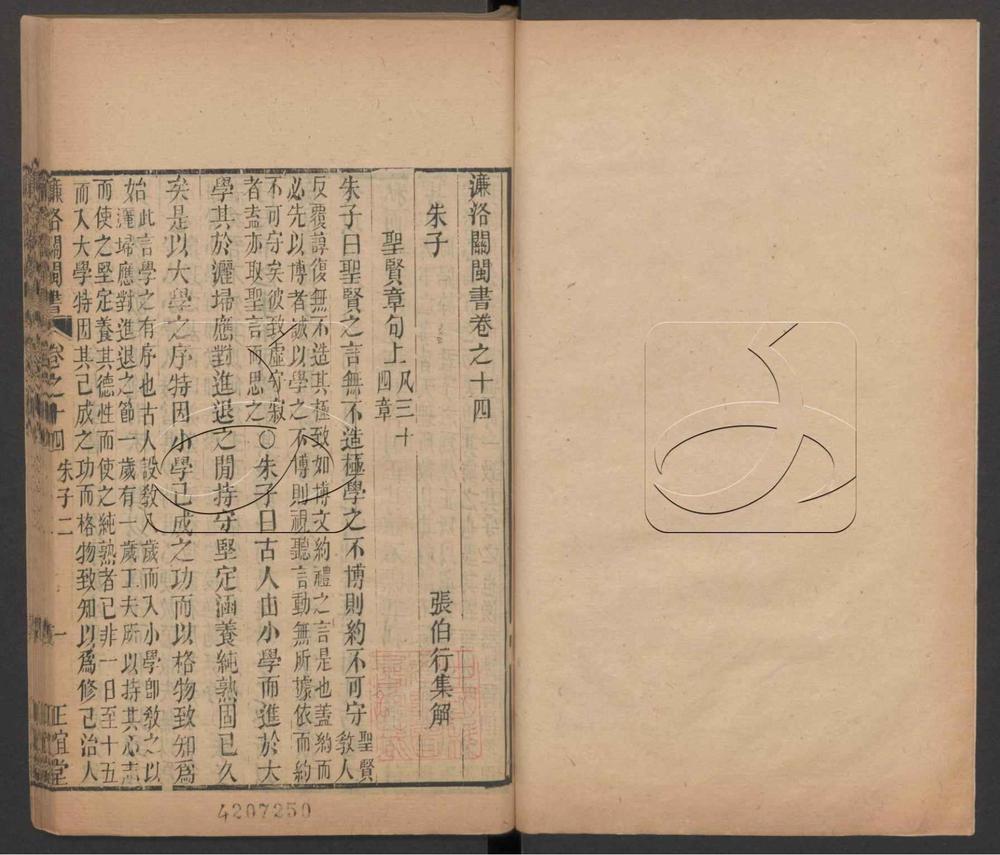 濂洛關閩書卷之十四
朱子　張伯行集解
聖賢章句上凡三十四章
朱子曰聖賢之言無不造極學之不博則約不可守聖賢教人
反覆諄復無不造其極致如博文約禮之言是也蓋約而
必先以博者誠以學之不博則視聽言動無所據依而約
不可守矣彼致虛守寂
者盍亦取聖言而思之○朱子曰古人由小學而進於大
學其於灑埽應對進退之閒持守堅定涵養純熟固已久
矣是以大學之序特因小學已成之功而以格物致知爲
始此言學之有序也古人設敎八歲而入小學卽敎之以
灑埽應對進退之節一歲有一歲工夫所以持其心志
而使之堅定養其德性而使之純熟者已非一日至十五
而入大學特因其已成之功而格物致知以爲修己治人
濂洛關閩書 卷之十四 朱子二 一 正誼堂
4207250